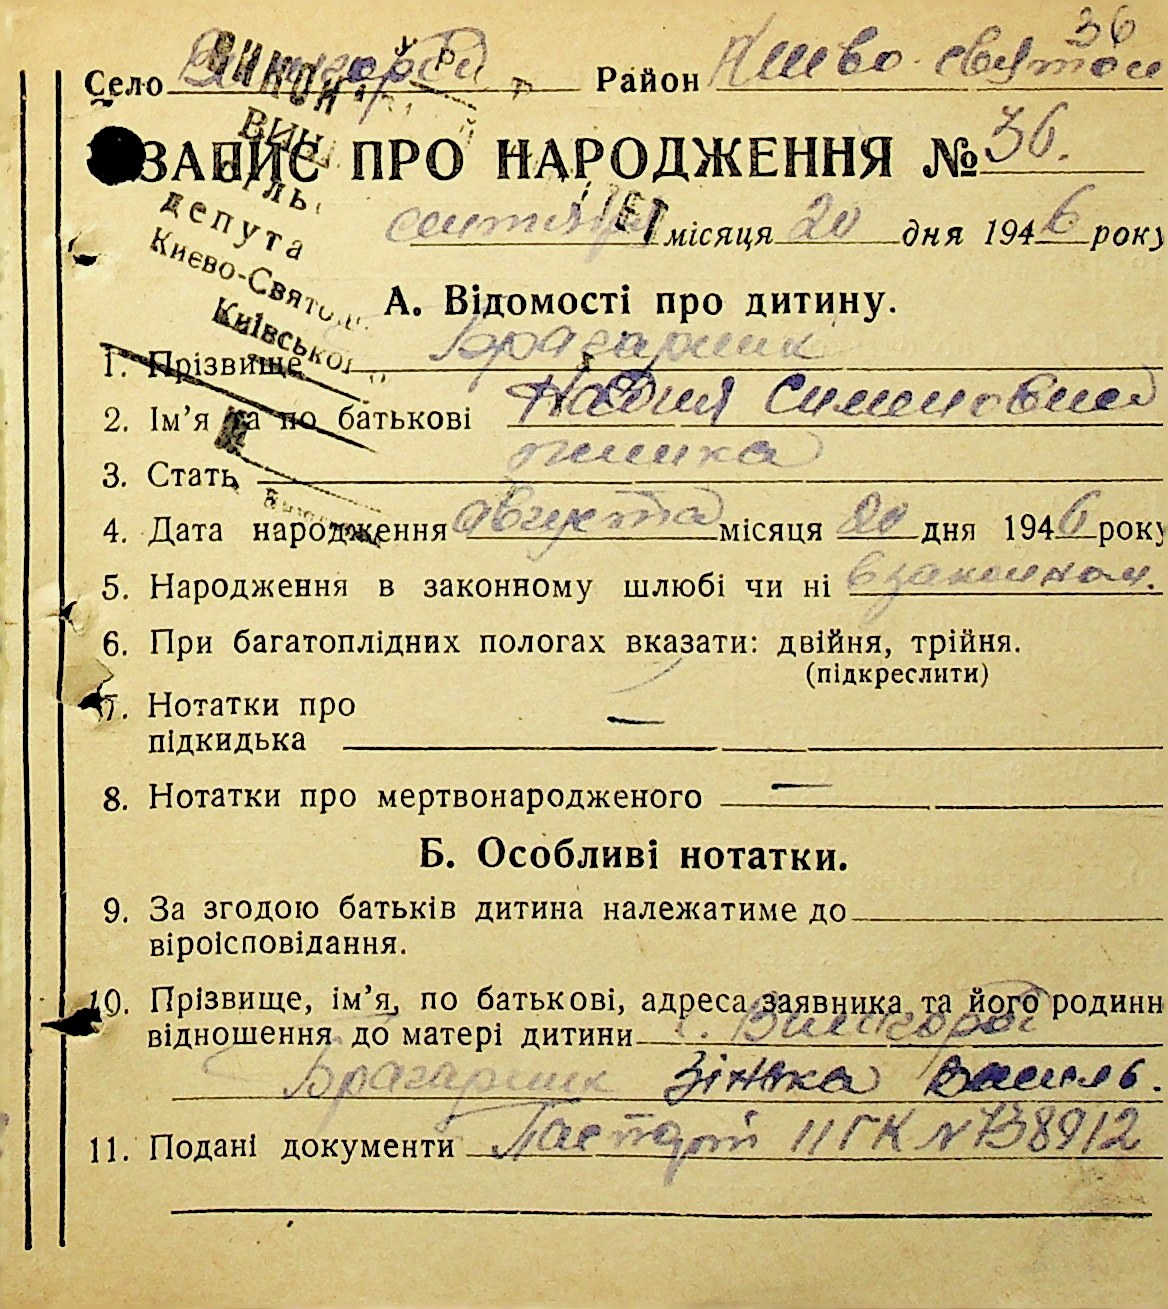 36
Село Вишгород Район Київо-Святош
ЗАПИС ПРО НАРОДЖЕННЯ № 36.
сентября місяця 20 дня 1946 року
депута
Києво-Свято
Київської
А. Відомості про дитину.
1. Прізвище Брагарник
2. Ім’я та по батькові Надия Симоновна
3. Стать
4. Дата народження августа місяця 20 дня 1946 року
5. Народження в законному шлюбі чи ні в законном.
6. При багатоплідних пологах вказати: двійня, трійня.
(підкреслити)
7. Нотатки про
підкидька —
8. Нотатки про мертвонародженого —
Б. Особливі нотатки.
9. За згодою батьків дитина належатиме до
віроісповідання.
10. Прізвище, ім’я, по батькові, адреса заявника та його родинн
відношення до матері дитини с. Вишгород
Брагарник Зінька Василь.
11. Подані документи Паспорт II ГК N 738912